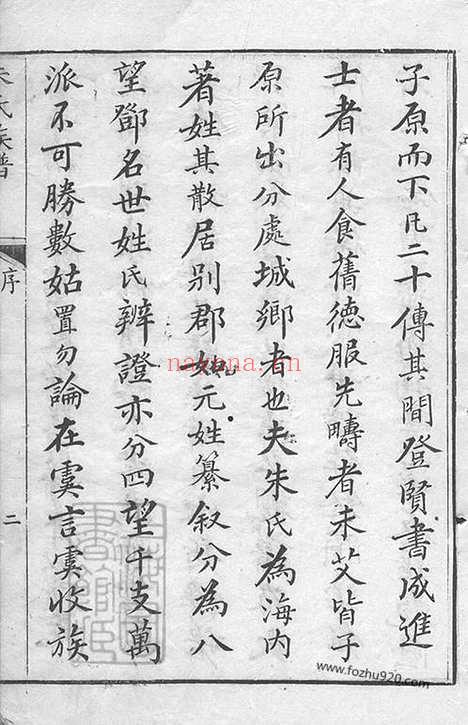 子原而下凡二十傳其間登賢書成進
士者有人食舊德服先疇者未艾皆子
原所出分處城鄉者也夫朱氏為海内
著姓其散居別郡如元姓纂叙分為八
望鄧名世姓氏辨證亦分四望千支萬
派不可勝數姑置勿論在虞言虞收族
朱氏族譜
序
二
nayona.cn
www.fozhu920.com